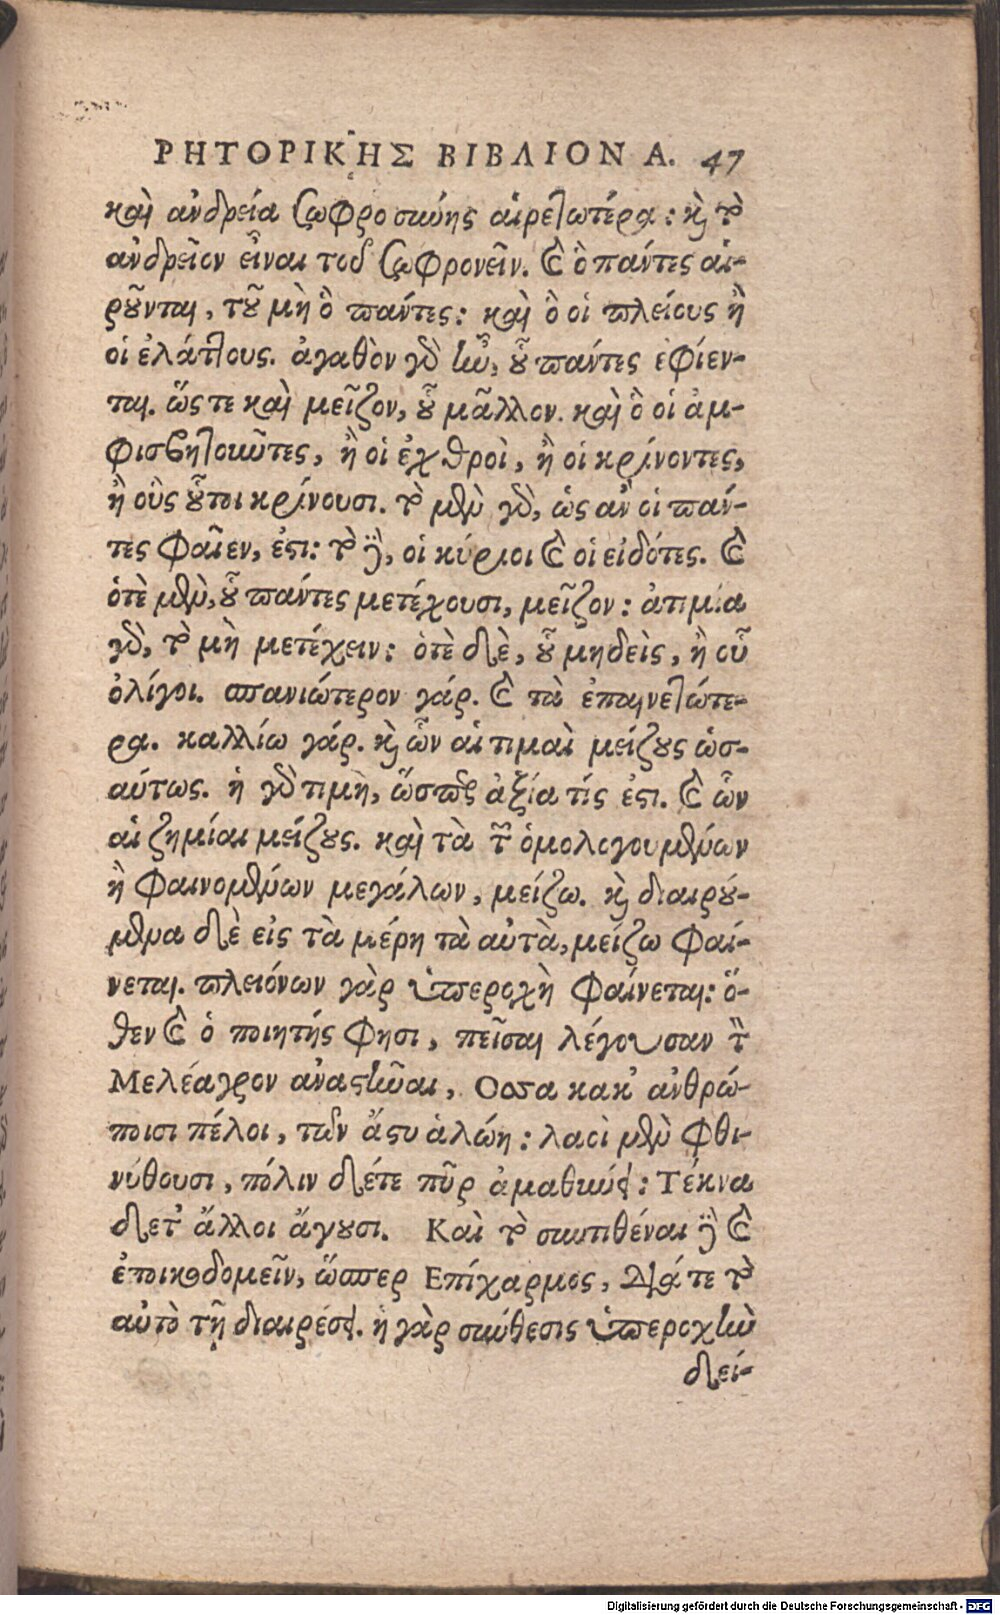 ΡΗΤΟΡΙΚΗΣ ΒΙΒΛΙΟΝ Α. 47
καὶ ἀνδρεία σωφροσύνης αἱρετωτέρα: κỳ τὸ
ἀνδρεῖον εἶναι τοῦ σωφρονεῖν. καὶ ὃ πάντες αἱ-
ροῦνται, τοῦ μὴ ὃ πάντες: καὶ ὃ οἱ πλείους ἢ
οἱ ἐλάττους. ἀγαθὸν γὰρ ἦν, οὗ πάντες ἐφίεν-
ται. ὥς τε καὶ μεῖζον, οὗ μᾶλλον. καὶ ὃ οἱ ἀμ-
φισβητοῦντες, ἢ οἱ ἐχθροὶ, ἢ οἱ κρίνοντες,
ἢ οὓς οὗτοι κρίνουσι. τὸ μὲν γὰρ, ὡς ἂν οἱ πάν-
τες φαῖεν, ἐστι: τὸ δὲ, οἱ κύριοι καὶ οἱ εἰδότες. καὶ
ὁτὲ μὲν, οὗ πάντες μετέχουσι, μεῖζον: ἀτιμία
γὰρ, τὸ μὴ μετέχειν: ὁτὲ δὲ, οὗ μηδεὶς, ἢ οὗ
ὀλίγοι. σπανιώτερον γάρ. καὶ τὰ ἐπαινετώτε-
ρα. καλλίω γάρ. καὶ ὧν αἱ τιμαὶ μείζους ὡσ-
αύτως. ἡ γὰρ τιμὴ, ὥσπερ ἀξία τίς ἐστι. καὶ ὧν
αἱ ζημίαι μείζους. καὶ τὰ τῶν ὁμολογουμένων
ἢ φαινομένων μεγάλων, μείζω. καὶ διαιρού-
μενα δὲ εἰς τὰ μέρη τὰ αὐτὰ, μείζω φαί-
νεται. πλειόνων γὰρ ὑπεροχὴ φαίνεται: ὅ-
θεν καὶ ὁ ποιητής φησι, πεῖσαι λέγουσαν τὸν
Μελέαγρον ἀναστῆναι, Οσσα κακ' ἀνθρώ-
ποισι πέλοι, τῶν ἄστυ ἁλώῃ: λαοὶ μὲν φθι-
νύθουσι, πόλιν δέτε πῦρ ἀμαθύνει: Τέκνα
δετ' ἄλλοι ἄγουσι. Καὶ τὸ συντιθέναι δὲ καὶ
ἐποικοδομεῖν, ὥσπερ Επίχαρμος, διά τε τὸ
αὐτὸ τῇ διαιρέσει. ἡ γὰρ σύνθεσις ὑπεροχὴν
δεί-
Digitalisierung gefördert durch die Deutsche Forschungsgemeinschaft - DFG